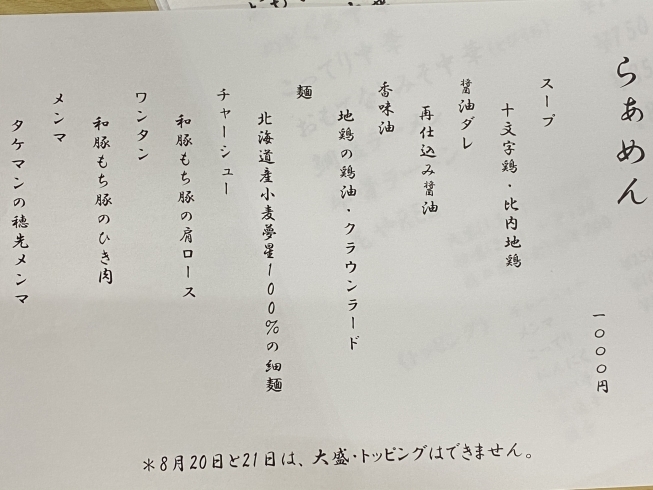 らぁめん
一〇〇〇円
スープ
十文字鶏・比内地鶏
醤油ダレ
再仕込み醤油
香味油
地鶏の鶏油・クラウンラード
麺
北海道産小麦夢星100%の細麺
チャーシュー
和豚もち豚の肩ロース
ワンタン
和豚もち豚のひき肉
メンマ
タケマンの穂先メンマ
*8月20日と21日は、大盛・トッピングはできません。